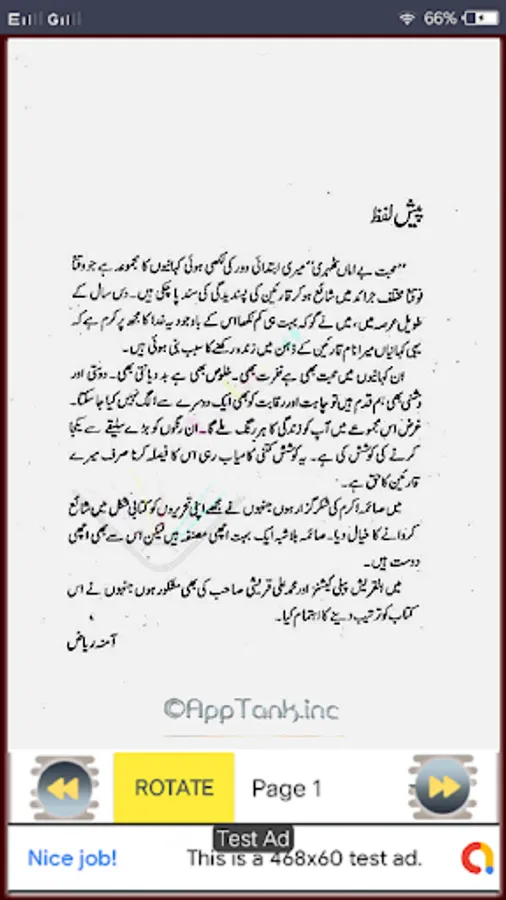 66%
پیش لفظ
"محبت بے اماں ٹھہری" میری ابتدائی دور کی لکھی ہوئی کہانیوں کا مجموعہ ہے جو وقتاً
فوقتاً مختلف جرائد میں شائع ہو کر قارئین کی پسندیدگی کی سند پا چکی ہیں۔ دس سال کے
طویل عرصہ میں، میں نے گو کہ بہت ہی کم لکھا اس کے باوجود یہ خدا کا مجھ پر کرم ہے کہ
یہی کہانیاں میرا نام قارئین کے ذہن میں زندہ رکھنے کا سبب بنی ہوئی ہیں۔
ان کہانیوں میں محبت بھی ہے نفرت بھی۔ خلوص بھی ہے بددیانتی بھی۔ دوستی اور
دشمنی بھی ہم قدم ہیں تو چاہت اور رقابت کو بھی ایک دوسرے سے الگ نہیں کیا جا سکتا۔
غرض اس مجموعے میں آپ کو زندگی کا ہر رنگ ملے گا۔ ان رنگوں کو بڑے سلیقے سے یکجا
کرنے کی کوشش کی ہے۔ یہ کوشش کتنی کامیاب رہی اس کا فیصلہ کرنا صرف میرے
قارئین کا حق ہے۔
میں صائمہ اکرم کی شکر گزار ہوں جنہوں نے مجھے اپنی تحریروں کو کتابی شکل میں شائع
کروانے کا خیال دیا۔ صائمہ بلاشبہ ایک بہت اچھی مصنفہ ہیں لیکن اس سے بھی اچھی
دوست ہیں۔
میں القریش پبلی کیشنز اور محمد علی قریشی صاحب کی بھی مشکور ہوں جنہوں نے اس
کتاب کو ترتیب دینے کا اہتمام کیا۔
آمنہ ریاض
©AppTank.inc
ROTATE Page 1
Test Ad
Nice job! This is a 468x60 test ad.